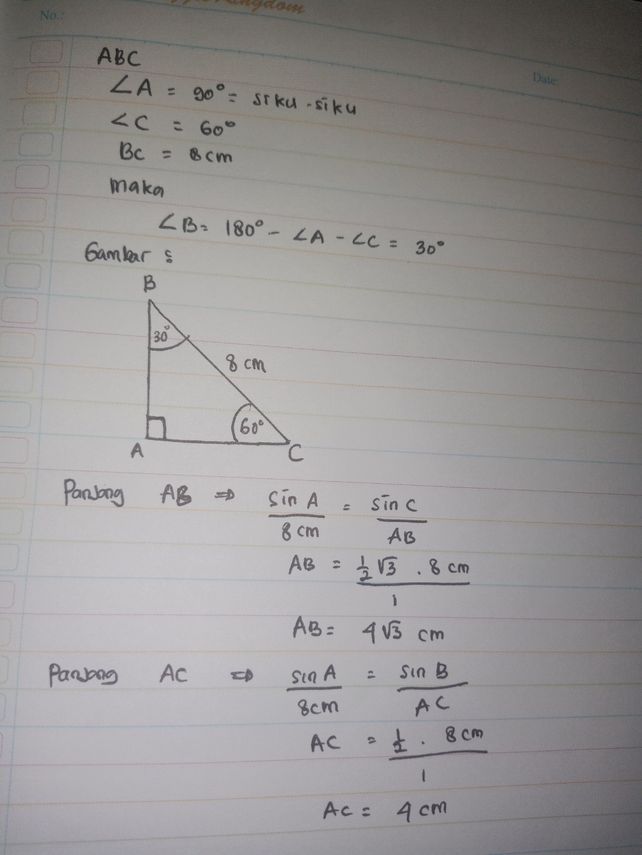 Kingdom
No.:
Date:
ABC
∠A = 90° = siku-siku
∠C = 60°
BC = 8cm
maka
∠B = 180° - ∠A - ∠C = 30°
Gambar :
B
30°
8 cm
60°
A
C
Panjang AB ⇒ sin A / 8 cm = sin C / AB
AB = ½√3 . 8 cm / 1
AB = 4√3 cm
Panjang AC ⇒ sin A / 8cm = sin B / AC
AC = ½ . 8 cm / 1
AC = 4 cm